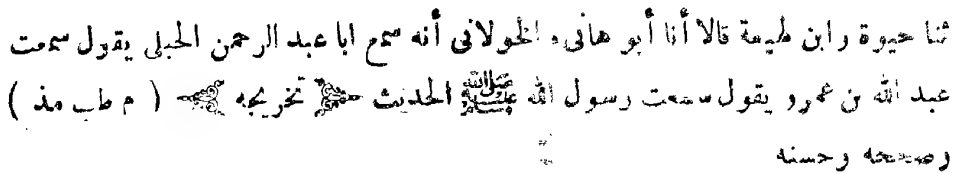 ثنا حيوة وابن لهيعة قالا أنا أبو هانىء الخولانى أنه سمع ابا عبد الرحمن الحبلى يقول سمعت
عبد الله بن عمرو يقول سمعت رسول الله ﷺ الحديث تخريجه ( م طب مذ )
وصححه وحسنه